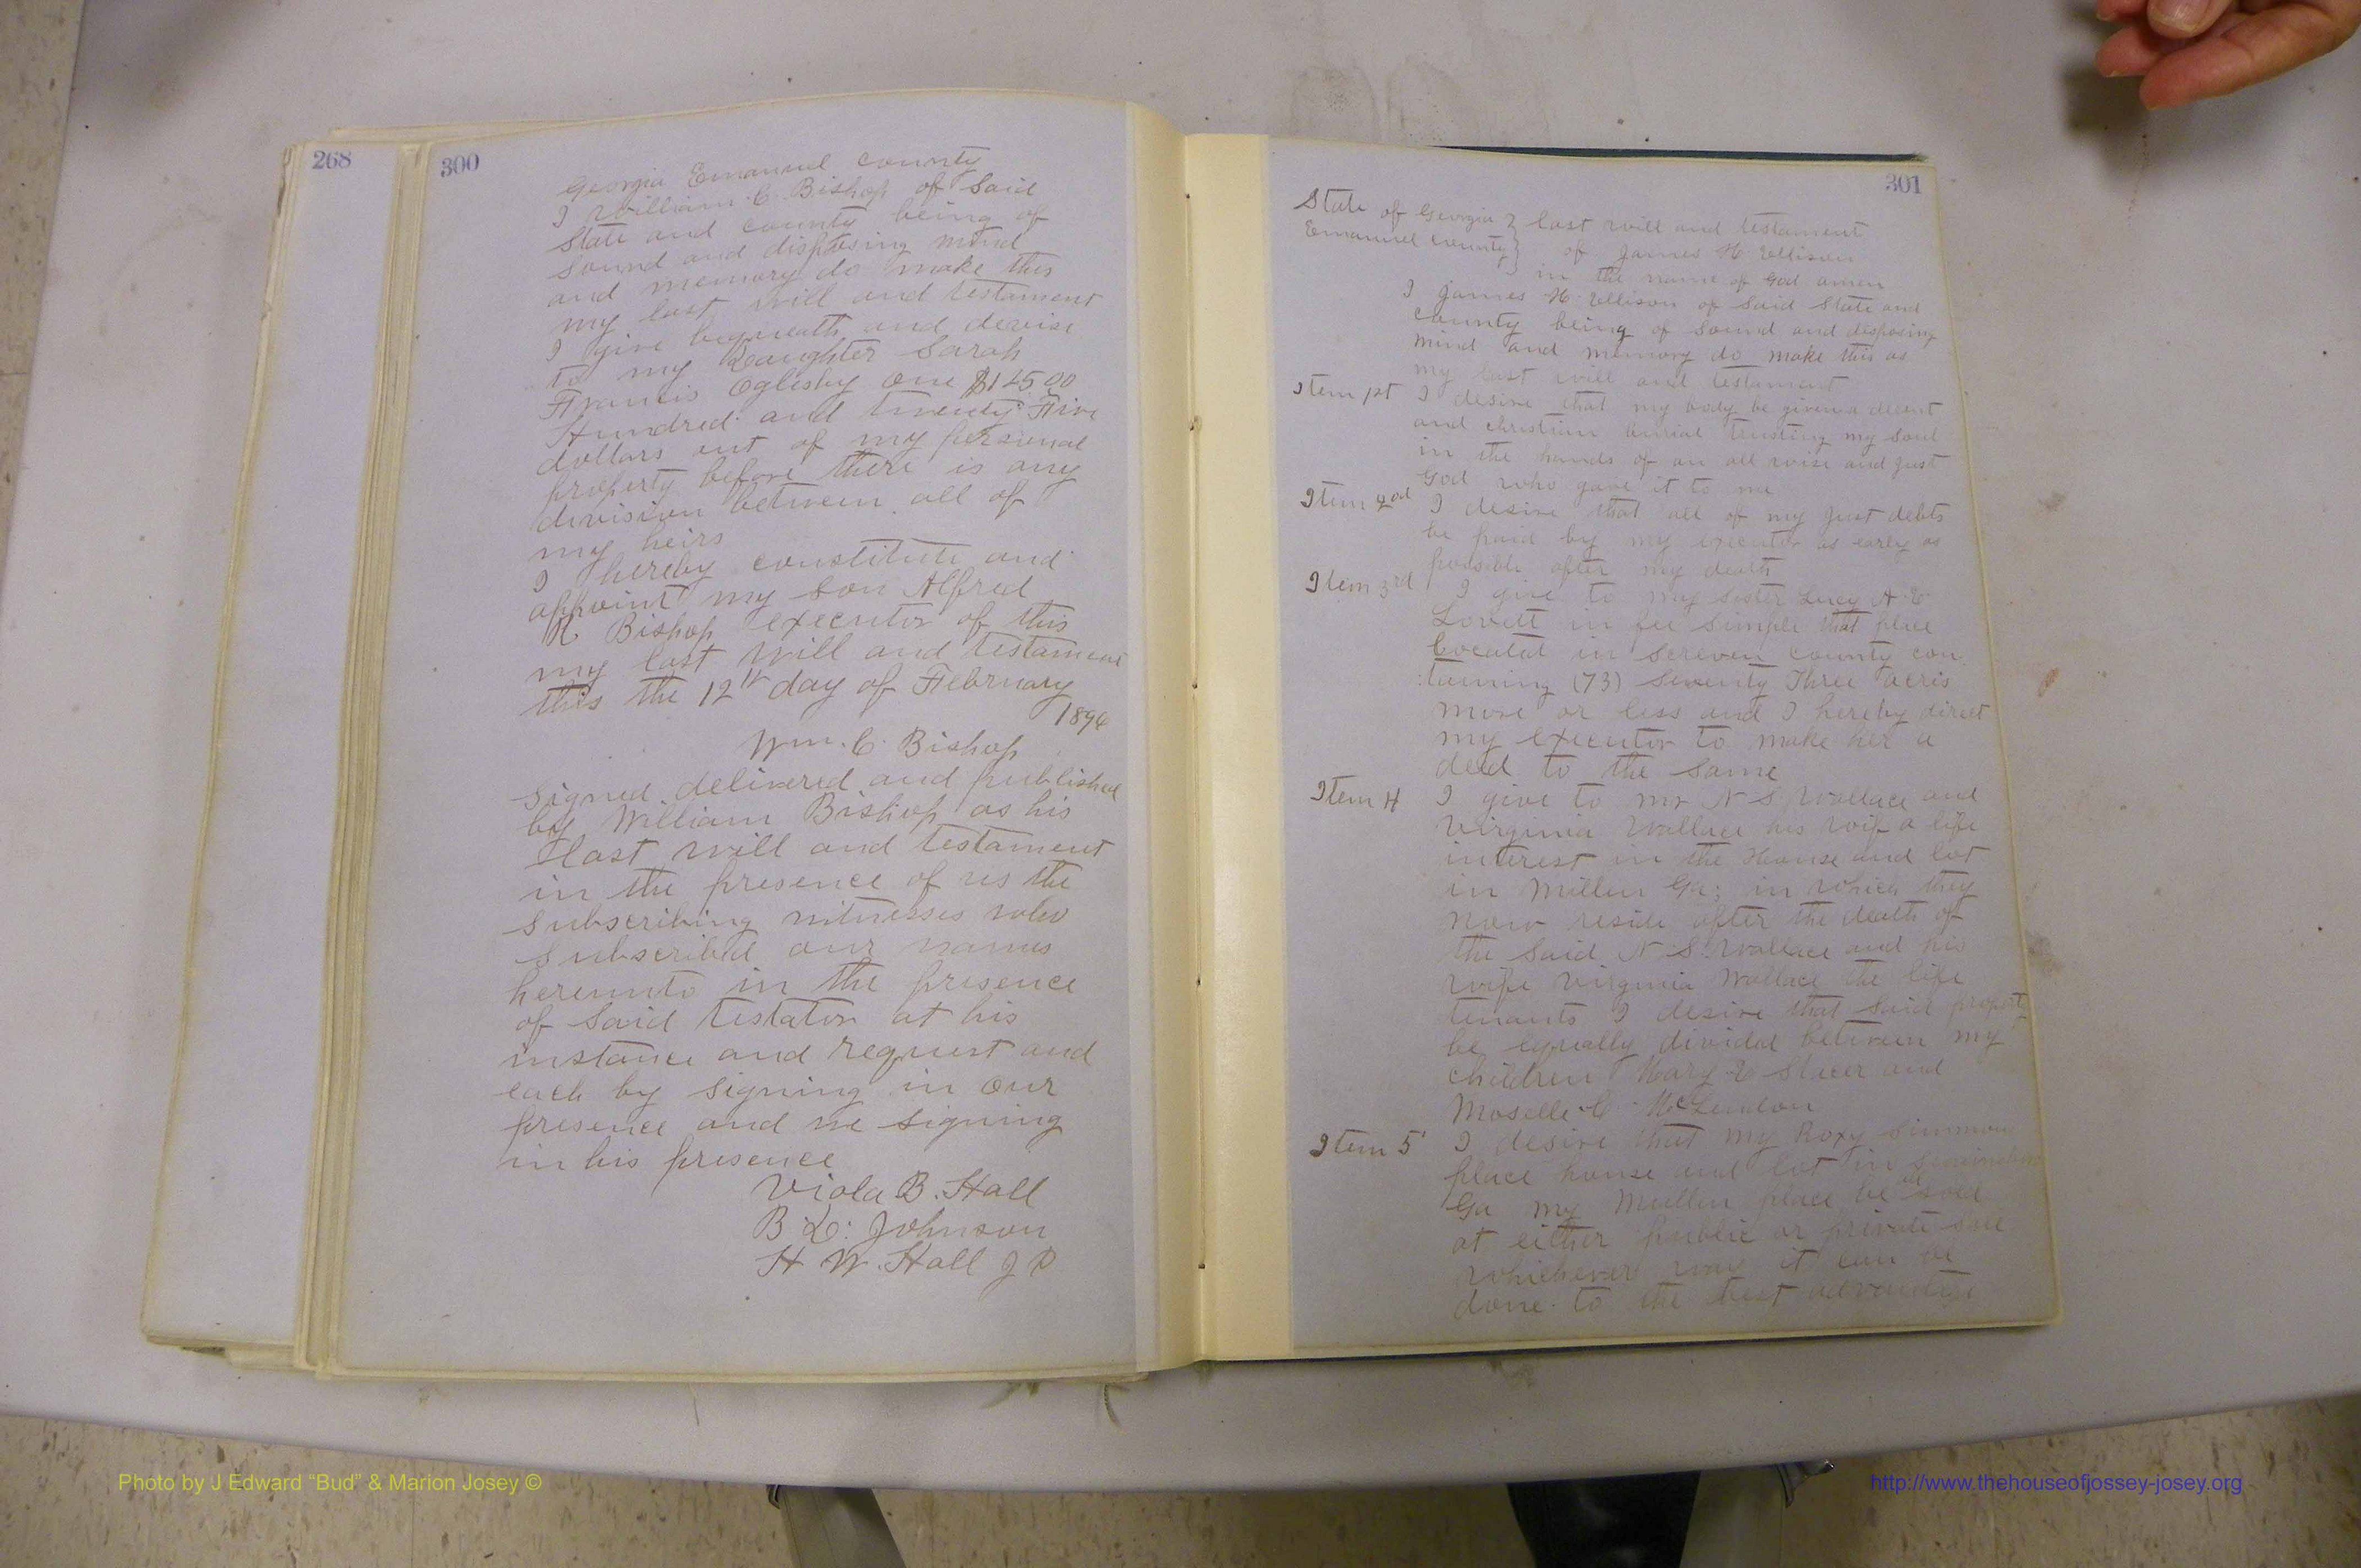 268
300
Georgia Emanuel county
I William C. Bishop of Said
State and county being of
Sound and disposing mind
and memory do make this
my last will and testament
I give bequeath and devise
to my Daughter Sarah
Francis Oglesby One $125.00
Hundred and twenty Five
dollars out of my personal
property before there is any
division between all of
my heirs
I hereby constitute and
appoint my son Alfred
Bishop executor of this
my last will and testament
this the 12th day of February
Wm. C. Bishop
Signed delivered and published
by William Bishop as his
last will and testament
in the presence of us the
subscribing witnesses who
subscribed our names
hereunto in the presence
of Said testator at his
instance and request and
each by signing in our
presence and we signing
in his presence
Viola B. Hall
B. Johnson
H W. Hall J P
301
State of Georgia } last will and testament
Emanuel county } of James H Ellison
in the name of God amen
I James H Ellison of Said State and
county being of Sound and disposing
mind and memory do make this as
my last will and testament
Item 1st I desire that my body be given a decent
and christian burial trusting my soul
in the hands of an all wise and just
God who gave it to me
Item 2nd I desire that all of my just debts
be paid by my executor as early as
possible after my death
Item 3rd I give to my sister Lucy A E
Lovett in fee simple that place
Located in Screven county con
taining (73) Seventy Three acres
more or less and I hereby direct
my executor to make her a
deed to the same
Item 4 I give to mr N S Wallace and
Virginia Wallace his wif a life
interest in the House and lot
in Millen Ga; in which they
now reside after the death of
the Said N S. Wallace and his
wife Virginia Wallace the life
tenants I desire that Said propert
be equally divided between my
children Mary E Stacer and
Moselle C McLendon
Item 5' I desire that my Roxy Simmons
place house and lot in
Ga my Mullin place be sold
at either public or private sale
whichever way it can be
done to the best advantage
Photo by J Edward “Bud” & Marion Josey ©
http://www.thehouseofjossey-josey.org